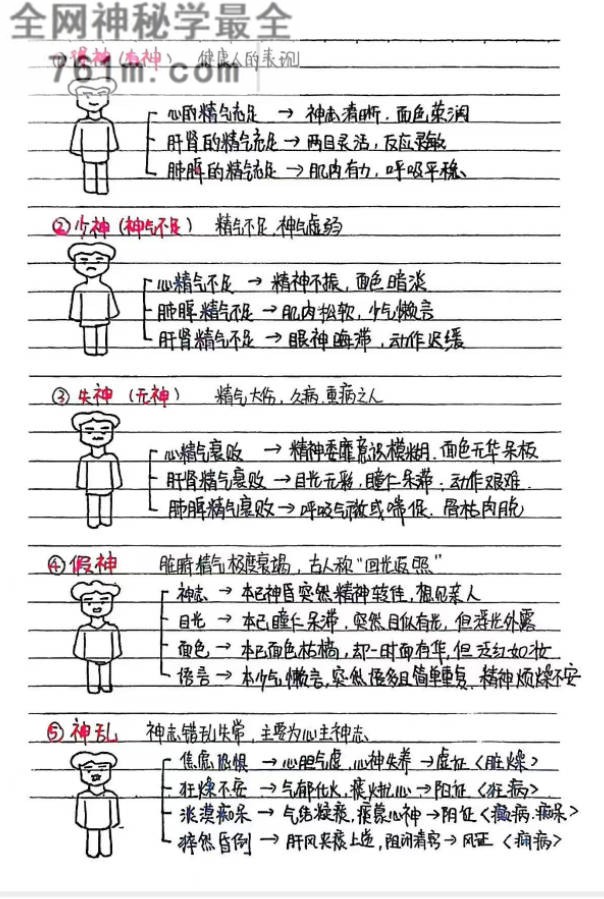 全网神秘学最全
761m.com
①得神(有神) 健康人的表现
心的精气充足 → 神志清晰.面色荣润
肝肾的精气充足 → 两目灵活,反应灵敏
肺脾的精气充足 → 肌肉有力,呼吸平稳、
②少神(神气不足) 精气不足,神气虚弱
心精气不足 → 精神不振,面色暗淡
肺脾精气不足 → 肌肉松软,少气懒言
肝肾精气不足 → 眼神晦滞,动作迟缓
③失神(无神) 精气大伤,久病.重病之人
心精气衰败 → 精神委靡意识模糊.面色无华呆板
肝肾精气衰败 → 目光无彩,瞳仁呆滞.动作艰难.
肺脾精气衰败 → 呼吸气微或喘促.唇枯肉脱
④假神 脏腑精气极度衰竭,古人称“回光返照”
神志 → 本已神昏突然精神转佳,想见亲人
目光 → 本已瞳仁呆滞.突然目似有光,但浮光外露
面色 → 本已面色枯槁,却一时面有华,但泛红如妆
语言 → 本少气懒言,突然语多且简单重复.精神烦燥不安
⑤神乱 神志错乱失常,主要为心主神志
焦虑恐惧 → 心胆气虚,心神失养 → 虚证〈脏燥〉
狂燥不安 → 气郁化火,痰火扰心 → 阳证〈狂病〉
淡漠痴呆 → 气结凝痰,痰蒙心神 → 阳证〈癫病.痴呆〉
猝然昏倒 → 肝风夹痰上逆,阻闭清窍 → 风证〈痫病〉